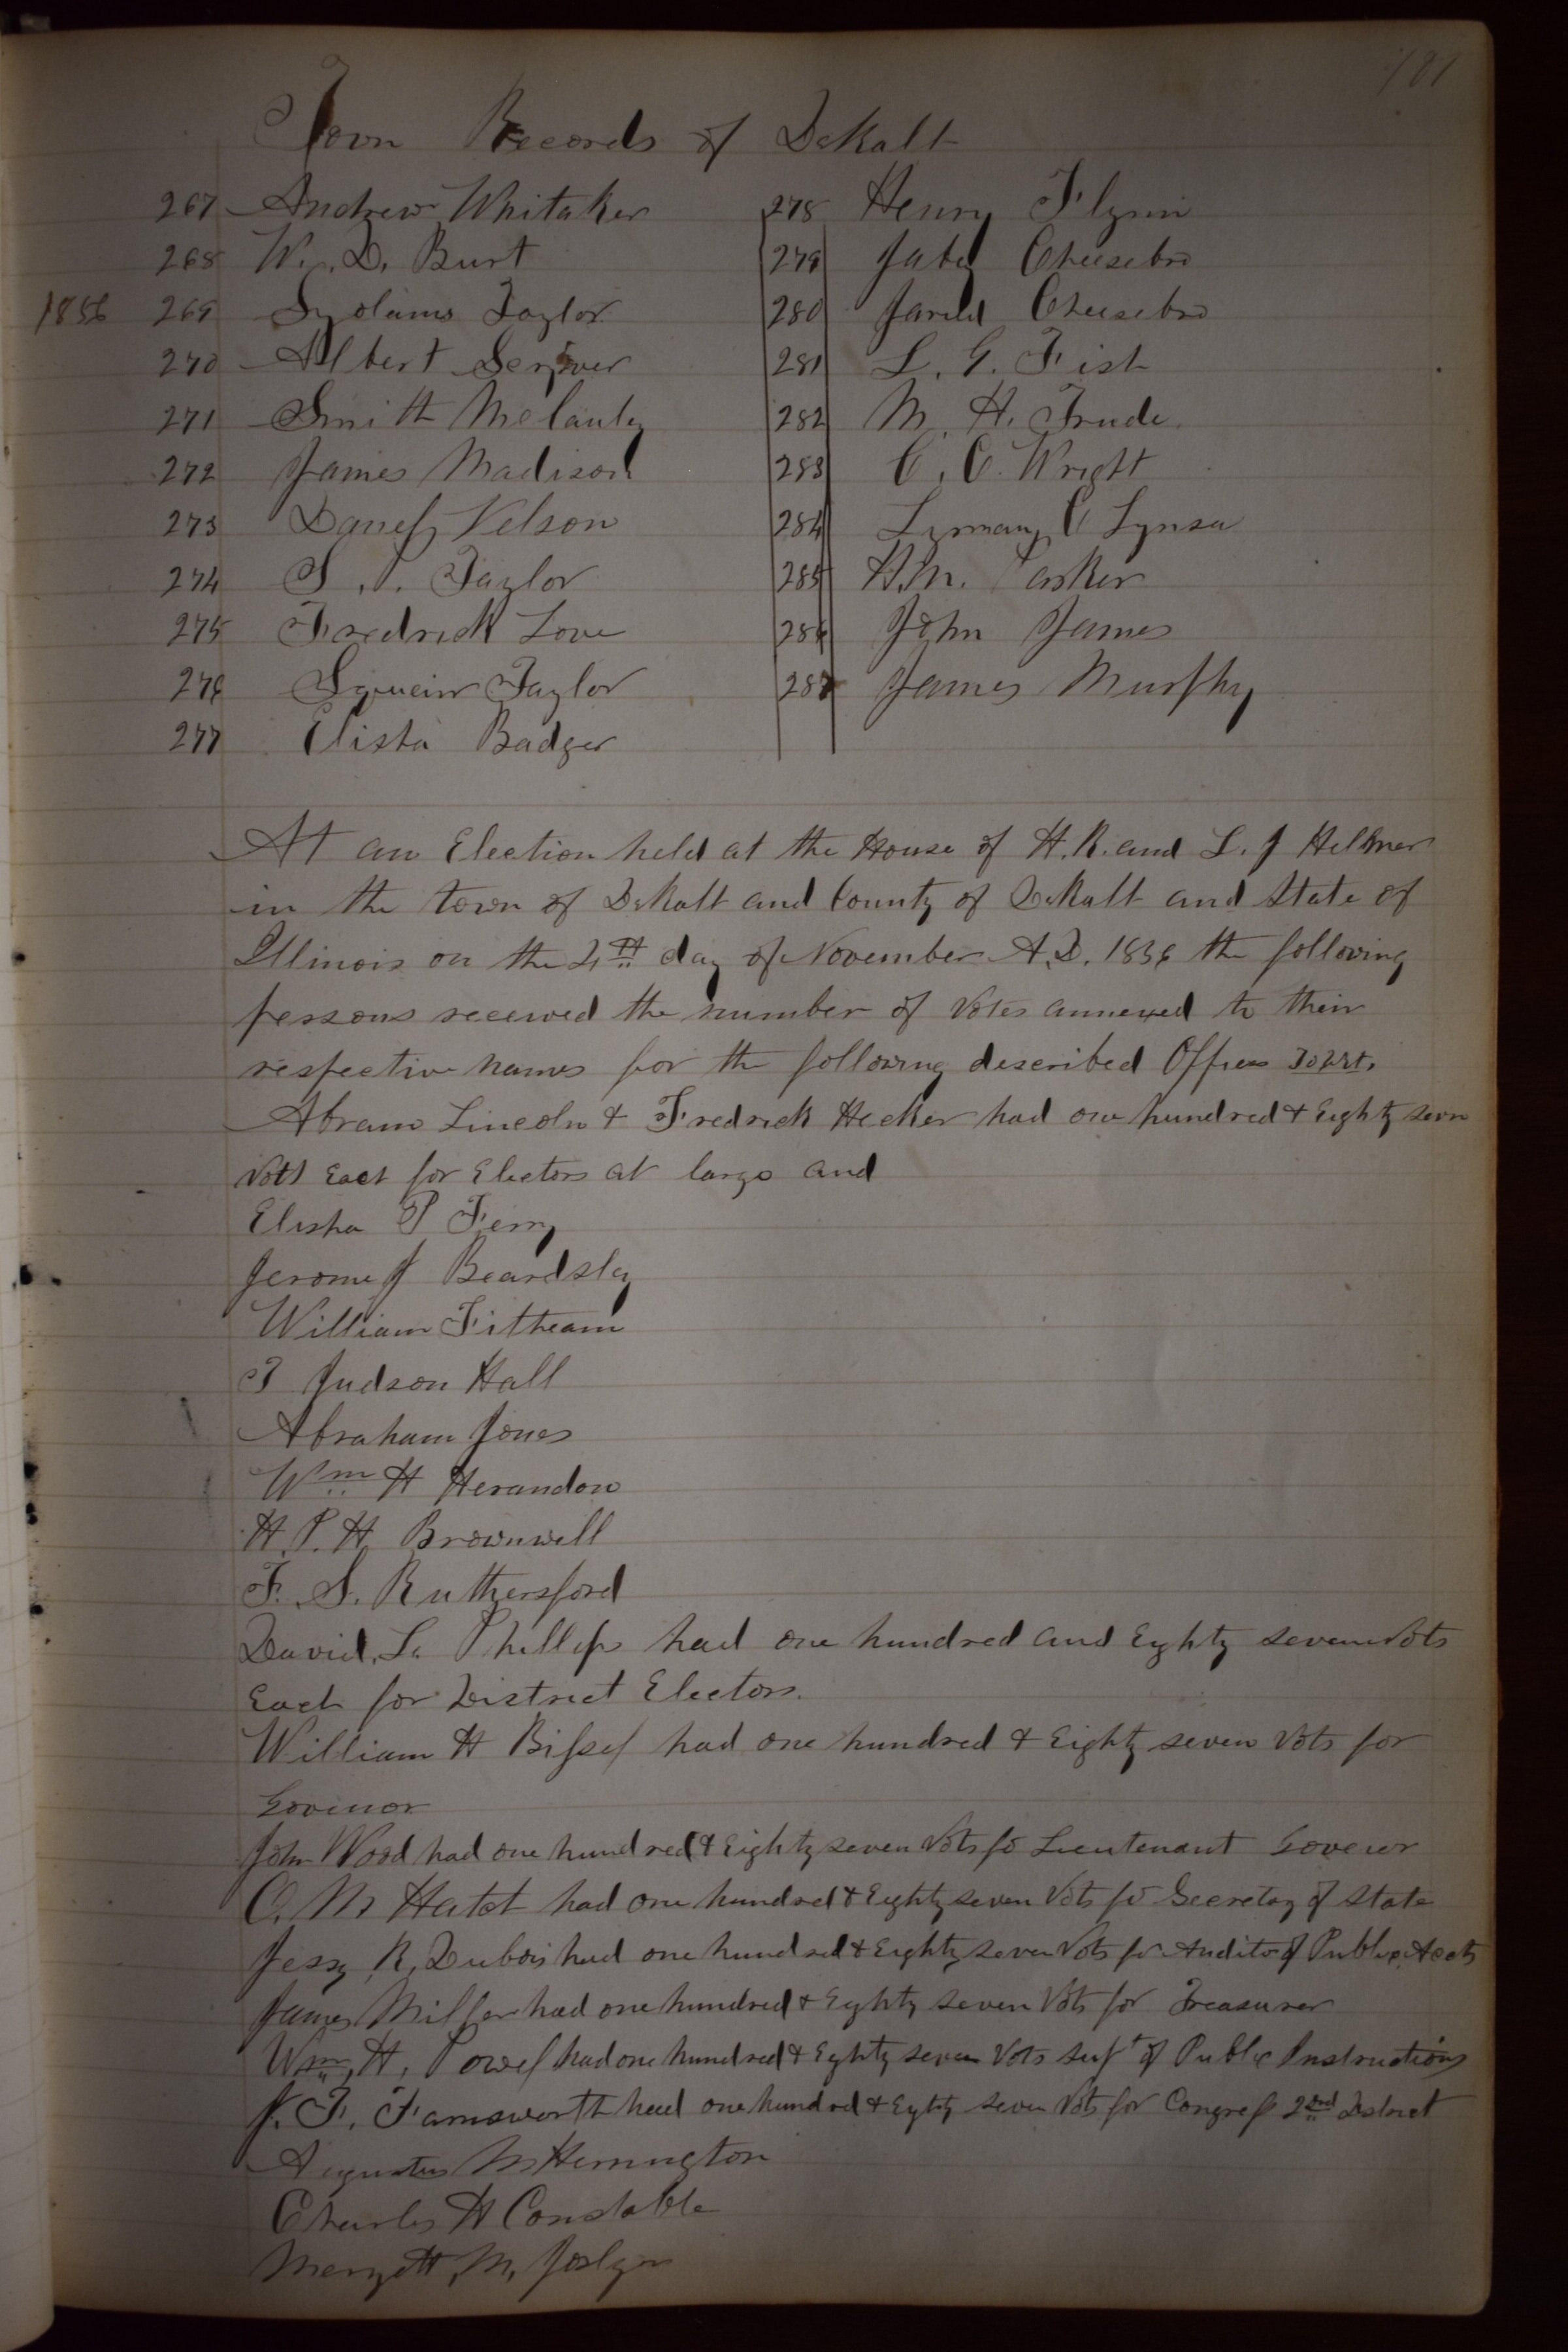 101
Town Records of DeKalb
267 Andrew Whitaker
268 W. D. Burt
1856 269 Taylor
270 Albert Scriver
271 Smith
272 James Madison
273 Nelson
274 S. P. Taylor
275 Fredrick Love
276 Taylor
277 Elisha Badger
278 Henry Flynn
279 Cheesebro
280 Cheesebro
281 L. G. Fish
282 M. H. Trude
283 C. C. Wright
284 Lyman C
285 H. M.
286 John James
287 James Murphy
At an Election held at the House of H. R. and L. J
in the town of DeKalb and County of DeKalb and State of
Illinois on the 4th day of November A.D. 1856 the following
persons received the number of Votes annexed to their
respective names for the following described Offices
Abram Lincoln & Fredrick Hecker had one hundred & Eighty seven
Vots Each for Electors at large and
Elisha P Ferry
Jerome J Beardsley
William Fitheam
T Judson Hall
Abraham Jones
Wm H Herandon
H. P. H. Brownwell
F. S. Ruthersford
David. L. Phillips had one hundred and Eighty seven Vots
Each for District Electors.
William H Bissel had one hundred & Eighty seven Vots for
Govenor
John Wood had one hundred & Eighty seven Vots fo Lieutenant Govenor
O. M Hatch had one hundred & Eighty seven Vots fo Secretay of State
Jessy R. Dubois had one hundred & Eighty seven Vots for Auditor of Public Accts
James Miller had one hundred & Eighty seven Vots for Treasurer
Wm, H, Powel had one hundred & Eighty seven Vots Supt of Public Instructions
J. F. Farnsworth had one hundred & Eighty seven Vots for Congress 2nd District
Augustus M Herrington
Charles H Constable
M, Joslyn